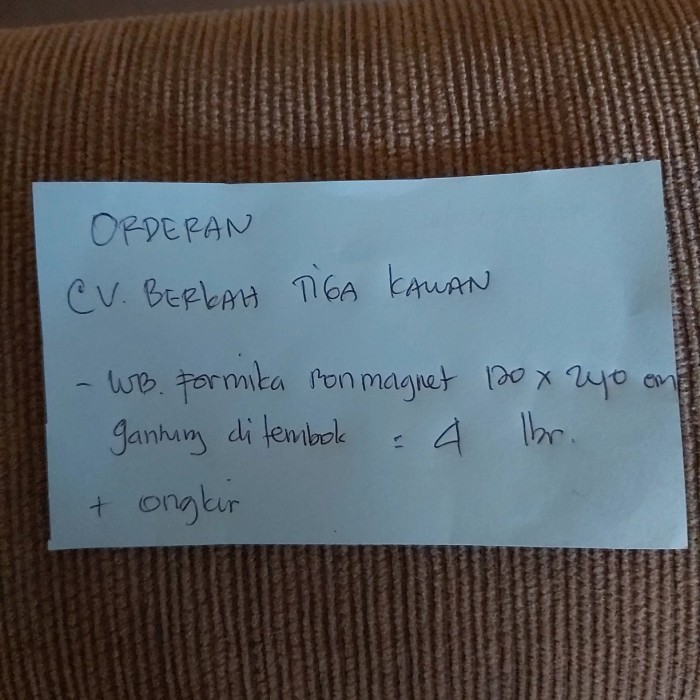 ORDERAN
CV. BERKAH TIGA KAWAN
- WB. formika nonmagnet 120 x 240 cm
gantung di tembok = 4 lbr.
+ ongkir